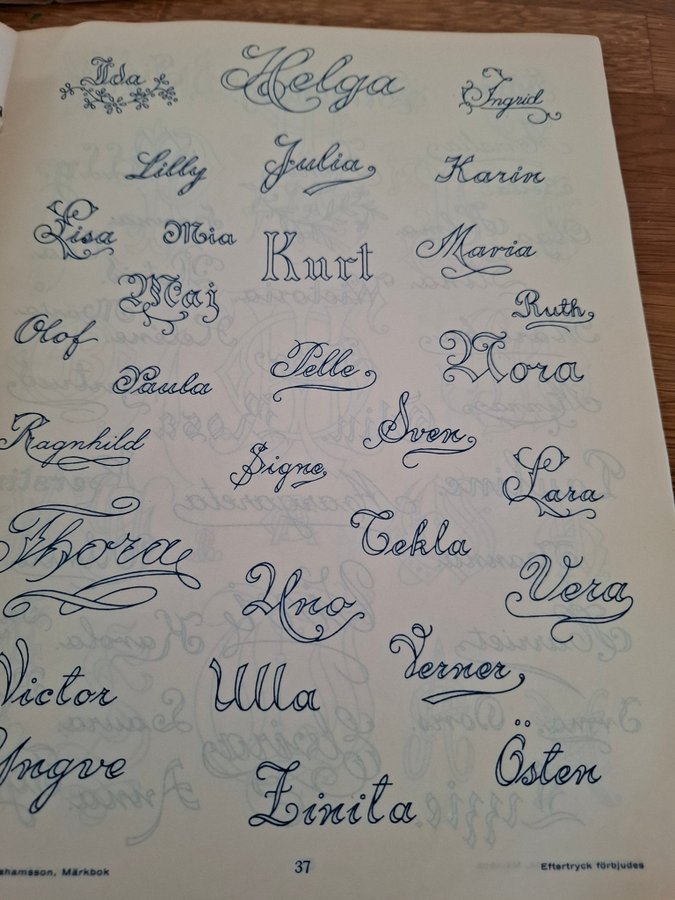 Ida Helga Ingrid
Lilly Julia Karin
Lisa Mia Kurt Maria
Maj Ruth
Olof Paula Pelle Nora
Ragnhild Signe Sven Lara
Thora Tekla
Uno Vera
Victor Ulla Verner
Yngve Zinita Östen
Märkbok 37 Eftertryck förbjudes